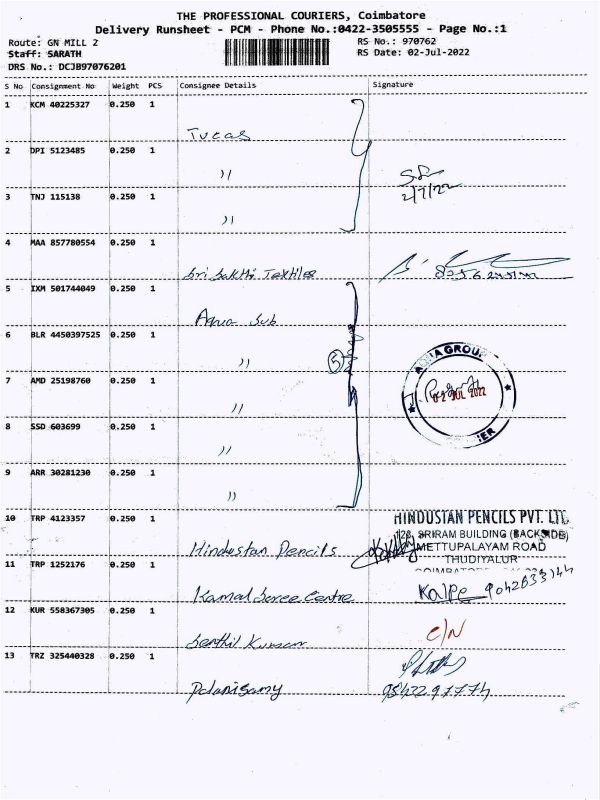 THE PROFESSIONAL COURIERS, Coimbatore
Delivery Runsheet - PCM - Phone No.:0422-3505555 - Page No.:1
Route: GN MILL 2
RS No.: 970762
Staff: SARATH
RS Date: 02-Jul-2022
DRS No.: DCJB97076201
S No Consignment No Weight PCS Consignee Details Signature
1 KCM 40225327 0.250 1
Tucas
2 DPI 5123485 0.250 1
"
2/7/22
3 TNJ 115138 0.250 1
"
4 MAA 857780554 0.250 1
Sri Sakthi Textiles
5 IXM 501744049 0.250 1
Aqua Sub
6 BLR 4450397525 0.250 1
"
5
AQUA GROUP
7 AMD 25198760 0.250 1
02 JUL 2022
"
8 SSD 603699 0.250 1
"
9 ARR 30281230 0.250 1
"
10 TRP 4123357 0.250 1
HINDUSTAN PENCILS PVT. LTD
SRIRAM BUILDING (BACKSIDE)
Hindustan Pencils
METTUPALAYAM ROAD
THUDIYALUR
11 TRP 1252176 0.250 1
Kamal Saree Centre
12 KUR 558367305 0.250 1
C/N
Senthil Kumar
13 TRZ 325440328 0.250 1
Palanisamy